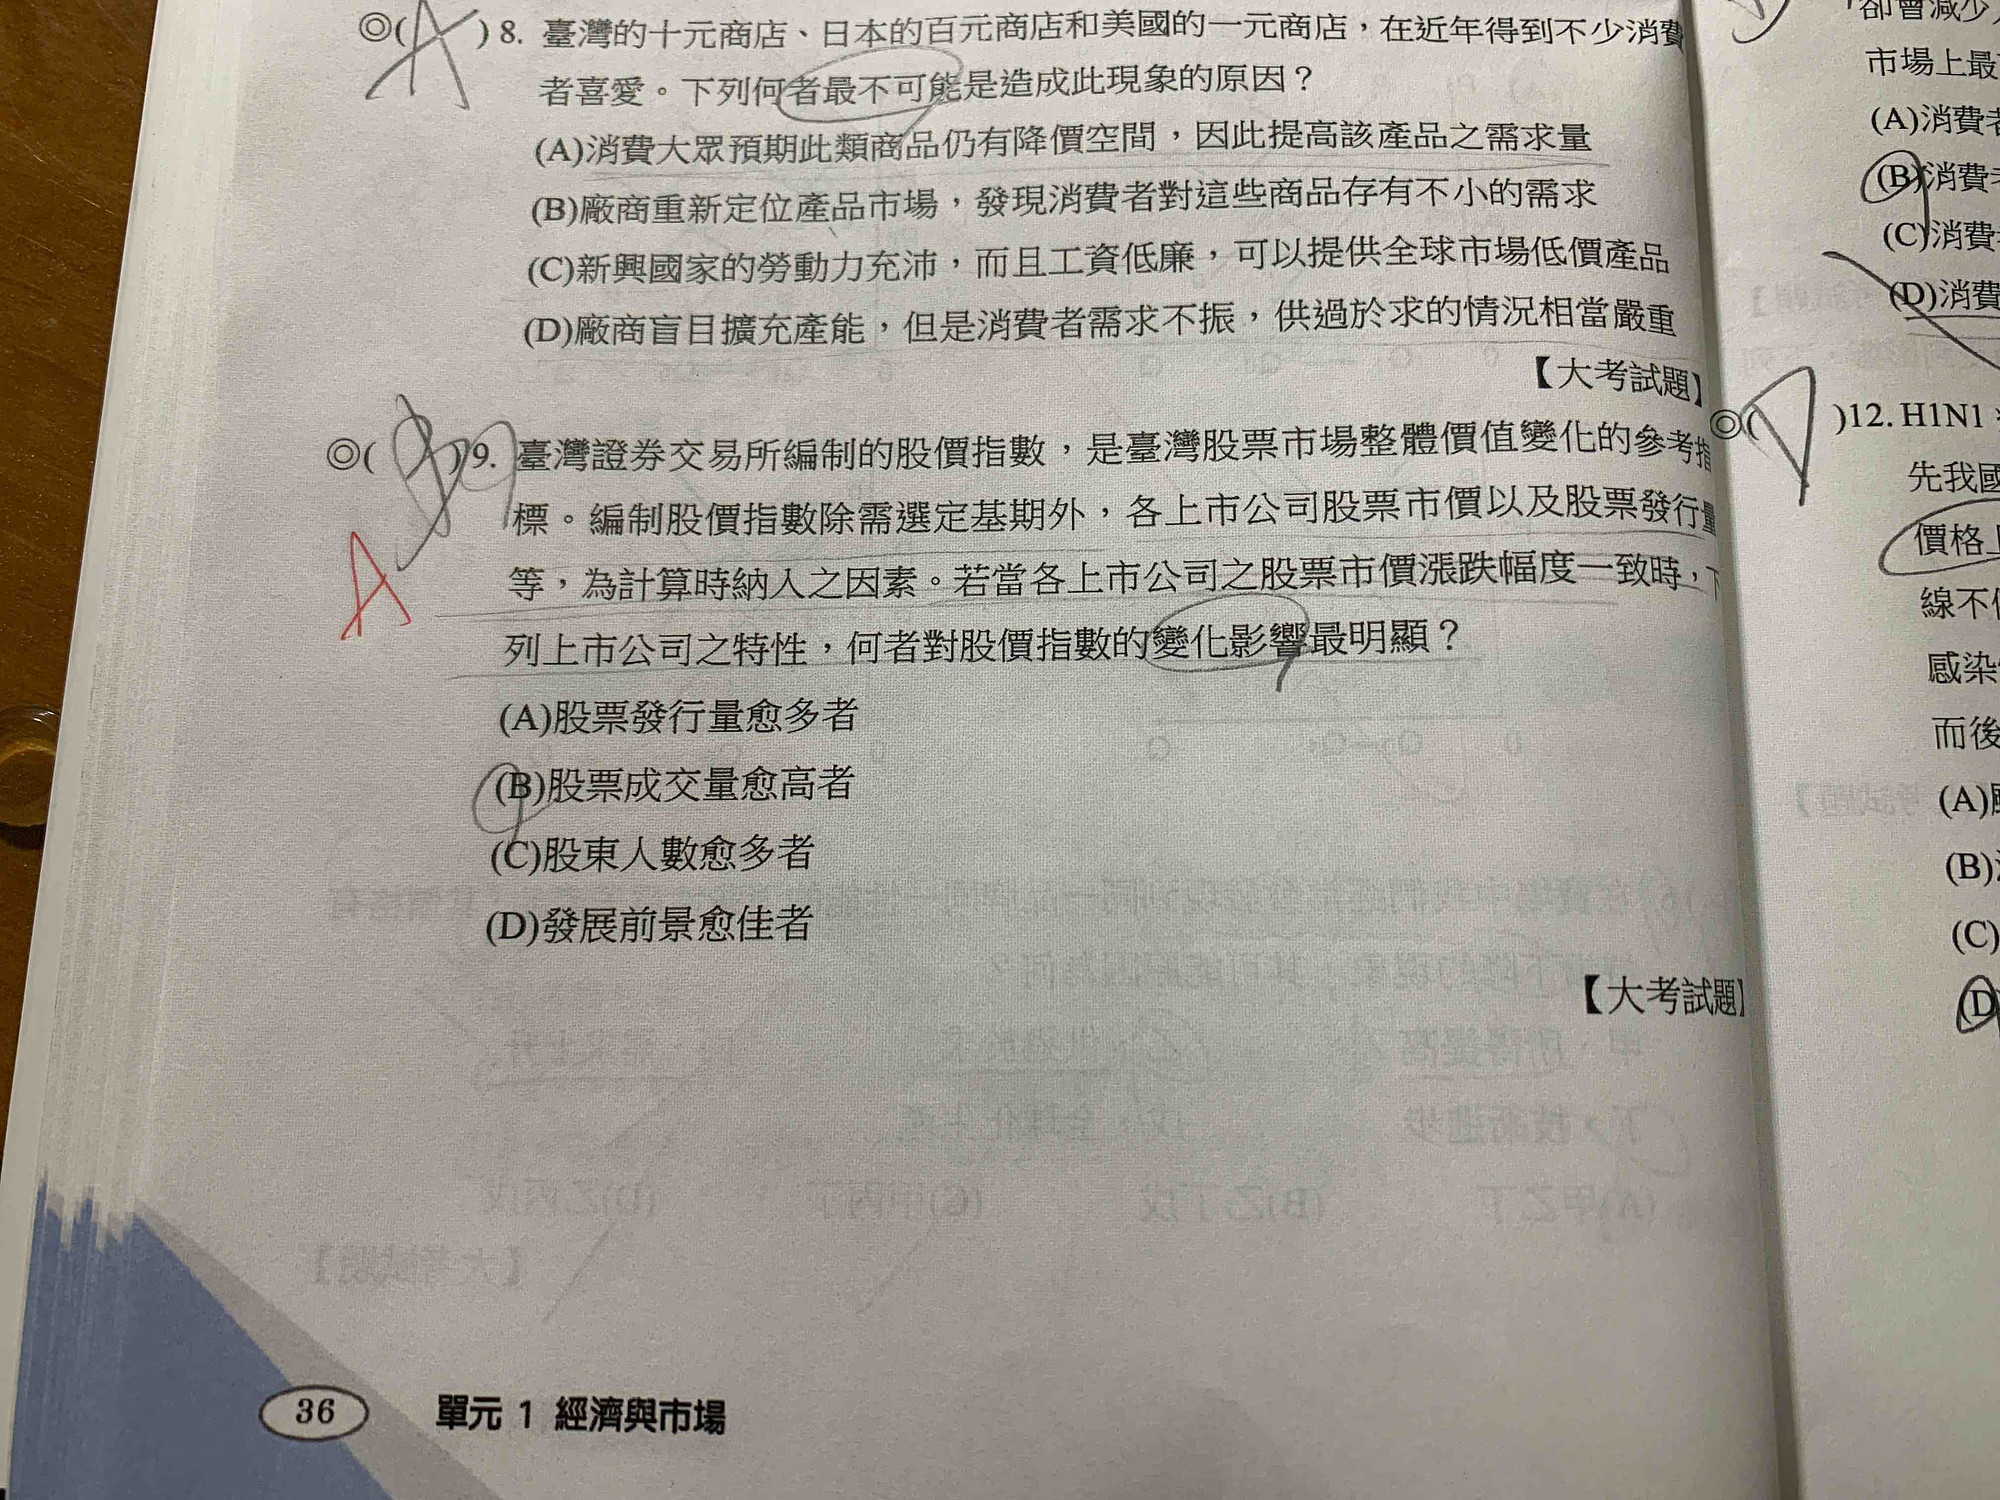 ◎( A )8. 臺灣的十元商店、日本的百元商店和美國的一元商店，在近年得到不少消費
者喜愛。下列何者最不可能是造成此現象的原因？
(A)消費大眾預期此類商品仍有降價空間，因此提高該產品之需求量
(B)廠商重新定位產品市場，發現消費者對這些商品存有不小的需求
(C)新興國家的勞動力充沛，而且工資低廉，可以提供全球市場低價產品
(D)廠商盲目擴充產能，但是消費者需求不振，供過於求的情況相當嚴重
【大考試題】
◎( B )9. 臺灣證券交易所編制的股價指數，是臺灣股票市場整體價值變化的參考指
標。編制股價指數除需選定基期外，各上市公司股票市價以及股票發行量
A
等，為計算時納入之因素。若當各上市公司之股票市價漲跌幅度一致時，下
列上市公司之特性，何者對股價指數的變化影響最明顯？
(A)股票發行量愈多者
(B)股票成交量愈高者
(C)股東人數愈多者
(D)發展前景愈佳者
【大考試題】
36 單元 1 經濟與市場
卻會減少
市場上最
(A)消費者
(B)消費
(C)消費
(D)消費
◎( D )12. H1N1
先我國
價格上
線不
感染
而後
(A)
(B)
(C)
(D)